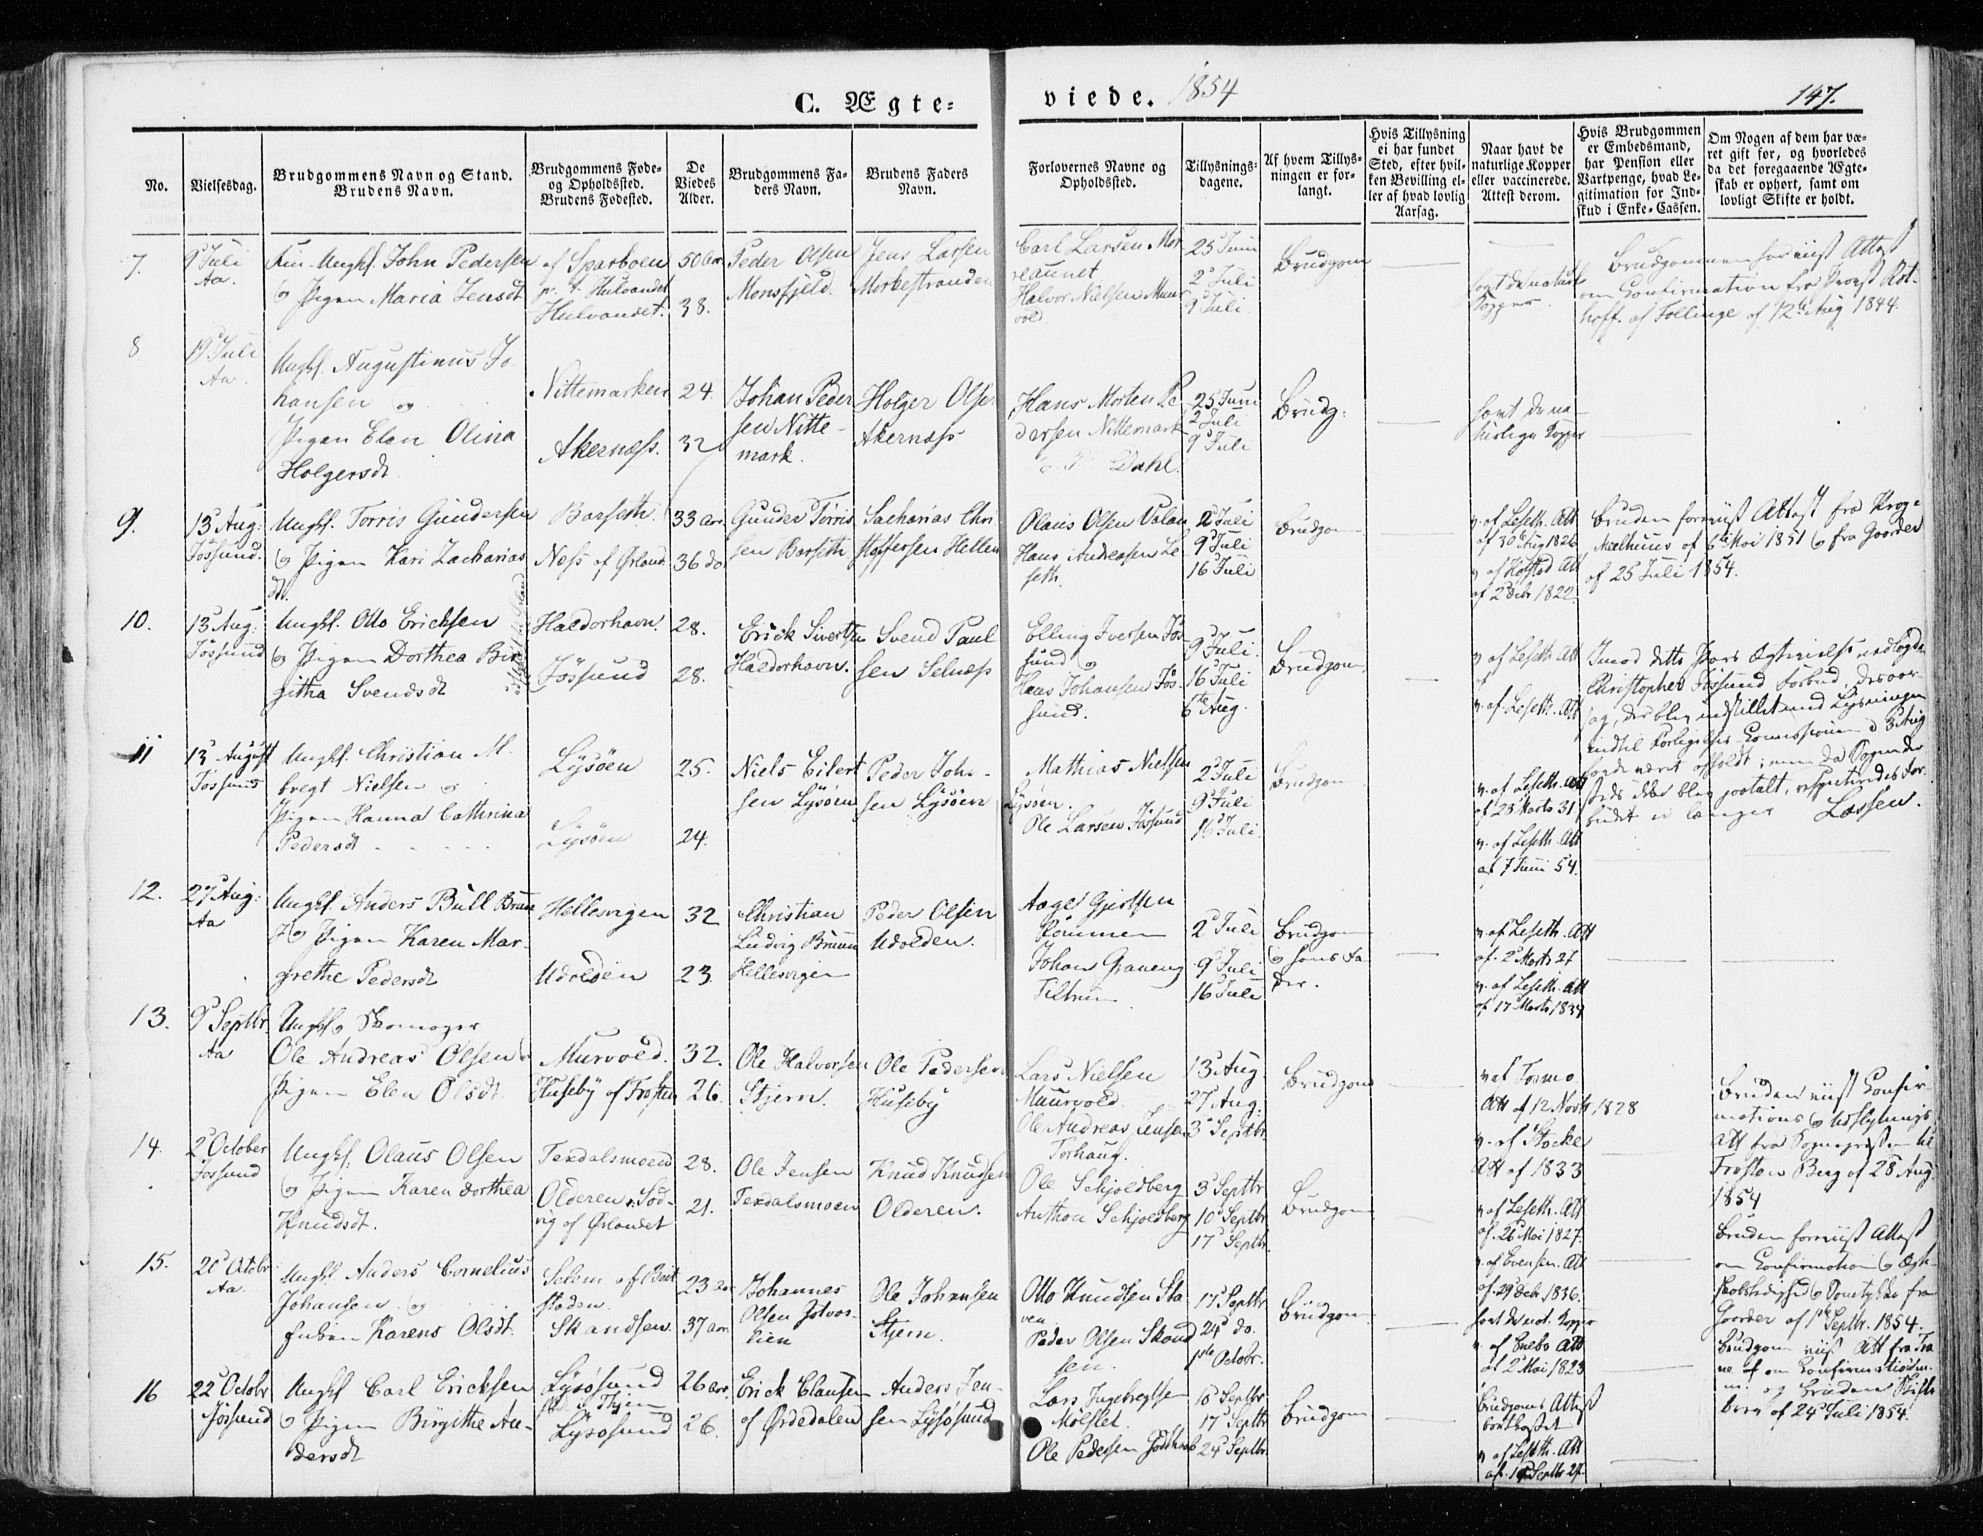 C. Ægte-
viede. 1854
147.
No.
Vielsesdag.
Brudgommens Navn og Stand.
Brudens Navn.
Brudgommens Føde-
og Opholdssted.
Brudens Fødested.
De
Viedes
Alder.
Brudgommens Fa-
ders Navn.
Brudens Faders
Navn.
Forlovernes Navne og
Opholdssted.
Tillysnings-
dagene.
Af hvem Tillys-
ningen er for-
langt.
Hvis Tillysning
ei har fundet
Sted, efter hvil-
ken Bevilling el-
ler af hvad lovlig
Aarsag.
Naar havt de
naturlige Kopper
eller vaccinerede.
Attest derom.
Hvis Brudgommen
er Embedsmand,
har Pension eller
Vartpenge, hvad Le-
gitimation for Ind-
skud i Enke-Cassen.
Om Nogen af dem har væ-
ret gift før, og hvorledes
da det foregaaende Ægte-
skab er ophørt, samt om
lovligt Skifte er holdt.
7.
9 Juli
Aa.
Ungk. John Pedersen
og Pigen Maria Jensdt
af Sparboen
Hulvandet
Hulvandet.
50 Aar
38.
Peder Olsen
Monsfjeld.
Jens Larsen
Morkestranden
Carl Larsen Mor
reaunet
Halvor Nielsen Muur
vold
25 Juni
2 Juli
9 Juli
Brudgom
havt de naturl
Kopper.
Brudgommen foreviist Attest
om Confirmation fra Provst
af Follinge af 12 Aug 1844.
8
19 Juli
Aa.
Ungk. Augustinus Jo
hansen og
Pigen Elen Olina
Holgersdt
Nittemarken
Akernæss.
24.
32
Johan Peder
sen Nitte-
mark.
Holger Olsen
Akernæss
Hans Morten Pe
dersen Nittemark
Dahl.
25 Juni
2 Juli
9 Juli
Brudg:
havt de na-
turlige Kopper
9.
13 Aug:
Jøssund.
Ungk. Torris Gundersen
og Pigen Kari Zacharias
dt.
Barseth.
Ness af Ørland
33 Aar
36 do
Gunder Torris
sen Barseth
Sacharias Chri
stoffersen Hellem
Olaus Olsen Valan
Hans Andreasen Le
seth.
2 Juli
9 Juli
16 Juli
Brudgom
v. af Leseth. Att
af 30 Aug 1826
v. af Kofstad Att
af 2 Debr 1822.
Bruden foreviist Attest fra
Meelhuus af 6 Mai 1851 og fra Gaarder
af 25 Juli 1854.
10.
13 Aug:
Jøssund
Ungk. Otto Ericksen
og Pigen Dorthea Bir
githa Svendsdt
Haldorhavn.
Jøssund
28.
28.
Erick Sivertsen
Haldorhavn.
Svend Paul
sen Selnæss
Elling Iversen Jøs
sund og
Hans Johansen Jøs-
sund.
9 Juli
16 Juli
6te Aug.
Brudgom
v. af Leseth. Att
v. af Leseth. Att
Imod dette Pars Ægtevielse nedlagde
Christopher Jøssund Forbud, desaar
sag, der blev indstillet med Lysningen
indtil Forligelses Commissionen d 3 Aug
havde været afholdt; men da Sagen der
steds ikke blev paatalt, respecteredes For
budet ei længer Lassen.
11
13 August
Jøssund
Ungk. Christian M-
bregt Nielsen og
Pigen Hanna Cathrina
Pedersdt
Lysøen
Lysøen
25.
24.
Niels Eilert
sen Lysøen
Peder Joh-
sen Lysøen
Mathias Nielsen
Lysøen.
Ole Larsen Jøssund
2 Juli
9 Juli
16 Juli.
Brudgom
v. af Leseth. Att
af 25 Marts 31
v. af Leseth. Att
af 7 Juni 54.
12.
27 Aug:
Aa
Ungk. Anders Bull Bruun
og Pigen Karen Mar-
grethe Pedersdt
Hellesvigen
Udolden
32
23.
Christian
Ludvig Bruun
Hellesvigen
Peder Olsen
Udolden.
Aage Gjertsen
Rømmen
Johan Graveng
2 Juli
9 Juli
16 Juli
Brudgom
og hans Fa
der.
v. af Leseth. Att
af 2 Marts 27
v. af Leseth. Att
af 17 Marts 1834
13.
9 Septbr.
Aa
Ungk og Skomager
Ole Andreas Olsen og
Pigen Elen Olsdt.
Murvold.
Huseby af Frosten
32.
26.
Ole Halvorsen
Stjern.
Ole Pedersen
Huseby
Lars Nielsen
Muurvold.
Ole Andreas Jensen
Torhaug.
13 Aug.
27 Aug.
3 Septbr.
Brudgom
v. af Tormo
Att af 12 Novbr 1828
v. af Stocke
Att af 1833
Bruden viist Confir
mations og Udflytnings
Att fra Sognepræsten til
Frosten Berg af 28 Aug.
1854
14.
2 October
Jøssund
Ungk. Olaus Olsen
og Pigen Karen Dorthea
Knudsdt.
Texdalsmoen
Olderen
vig af Ørlandet
28.
21.
Ole Jensen
Texdalsmoen
Knud Knudsen
Olderen.
Ole Schjoldberg
Anthon Schjoldberg
3 Septbr
10 Septbr
17 Septbr.
Brudgom
v. af Leseth. Att
af 26 Mai 1827.
v. af Evensen. Att
af 29 Debr 1836.
Bruden foreviist Attest
om Confirmation og Ægte-
skabsledighed og Samtykke fra
Gaarder af 1ste Septbr. 1854.
15.
20 Octobr
Aa.
Ungk. Anders Cornelius
Johansen og
Karens Olsdt.
Selem af Bect
staden.
Strandsen
23 Aar
37 Aar
Johannes
Olsen
Ole Johnsen
Stjern.
Otto Knudsen Sta
ven
Peder Olsen Skond
sen.
17 Septbr
24 do.
1ste Octobr.
Brudgom
havt de nat. Kopper
v. af Attest Att
af 2 Mai 1823
Brudgom viist Att fra
om Confirmation
og Bruden
brev af 24 Juli 1854.
16
22 Octobr
Jøssund
Ungk Carl Ericksen
og Pigen Birgithe An-
dersdt
Lysøsund
Lysøsund
26 Aar.
26.
Erick Clausen
af Ørdedalen
Anders Jen-
sen Lysøsund
Lars Ingebregtsen
Mølslet.
Ole Pedersen
10 Septbr
17 Septbr
24 Septbr
Brudgom
Brudgoms Attest
bortkastet
v. af Leseth. Att
af 19 Septbr 27.